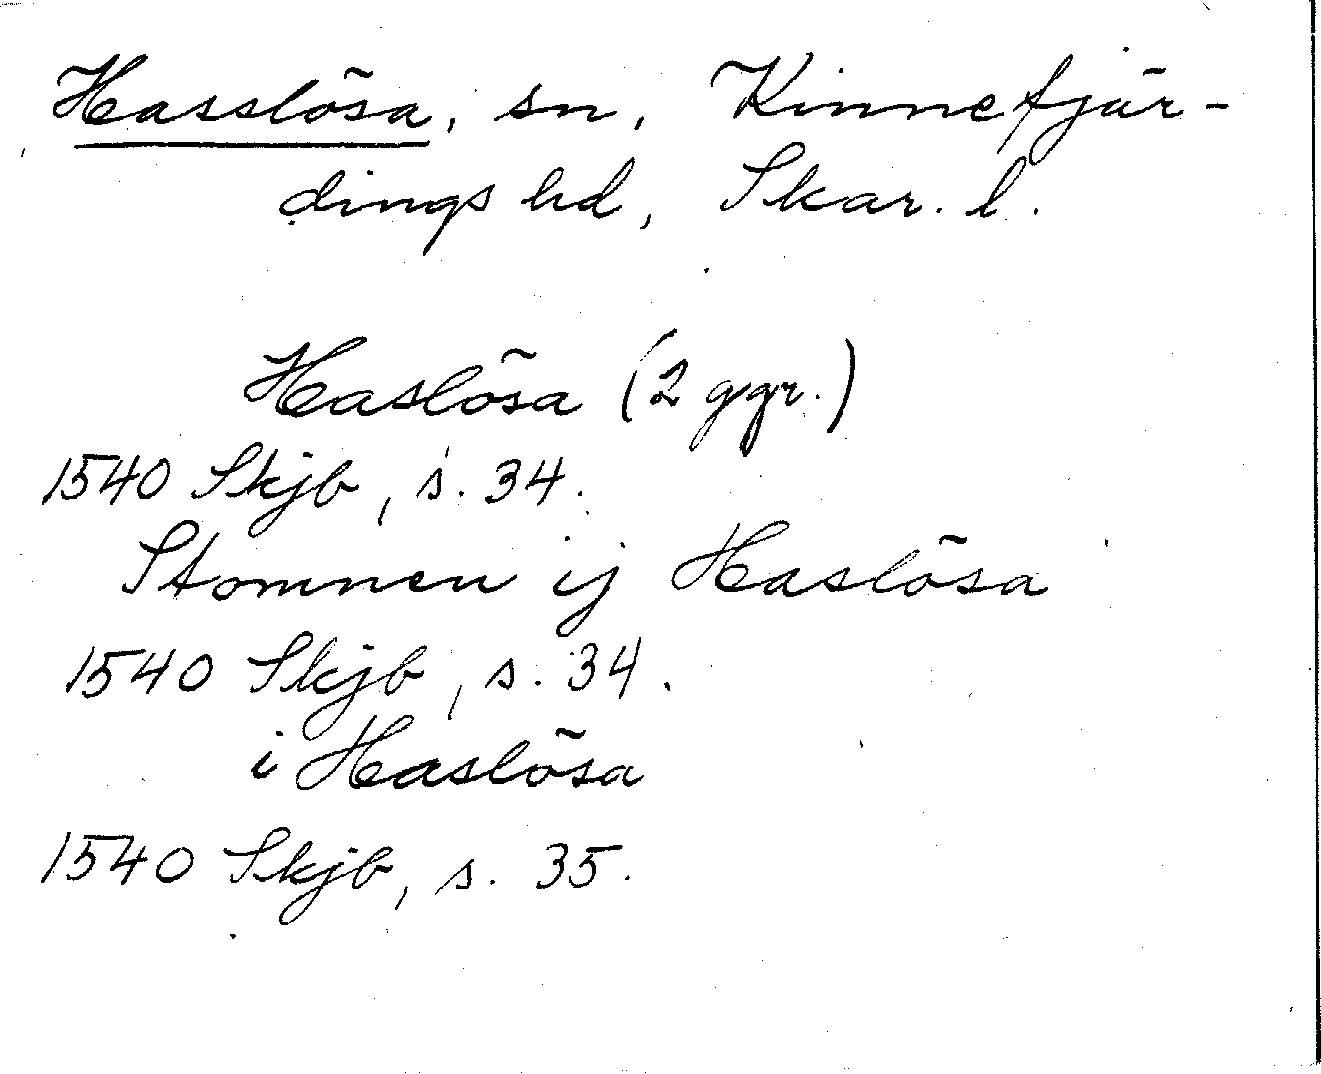 Hasslösa, sn, Kinnefjär-
dings hd, Skar. l.
Haslösa (2 ggr.)
1540 Skjb, s. 34.
Stommen ij Haslösa
1540 Skjb, s. 34.
i Haslösa
1540 Skjb, s. 35.